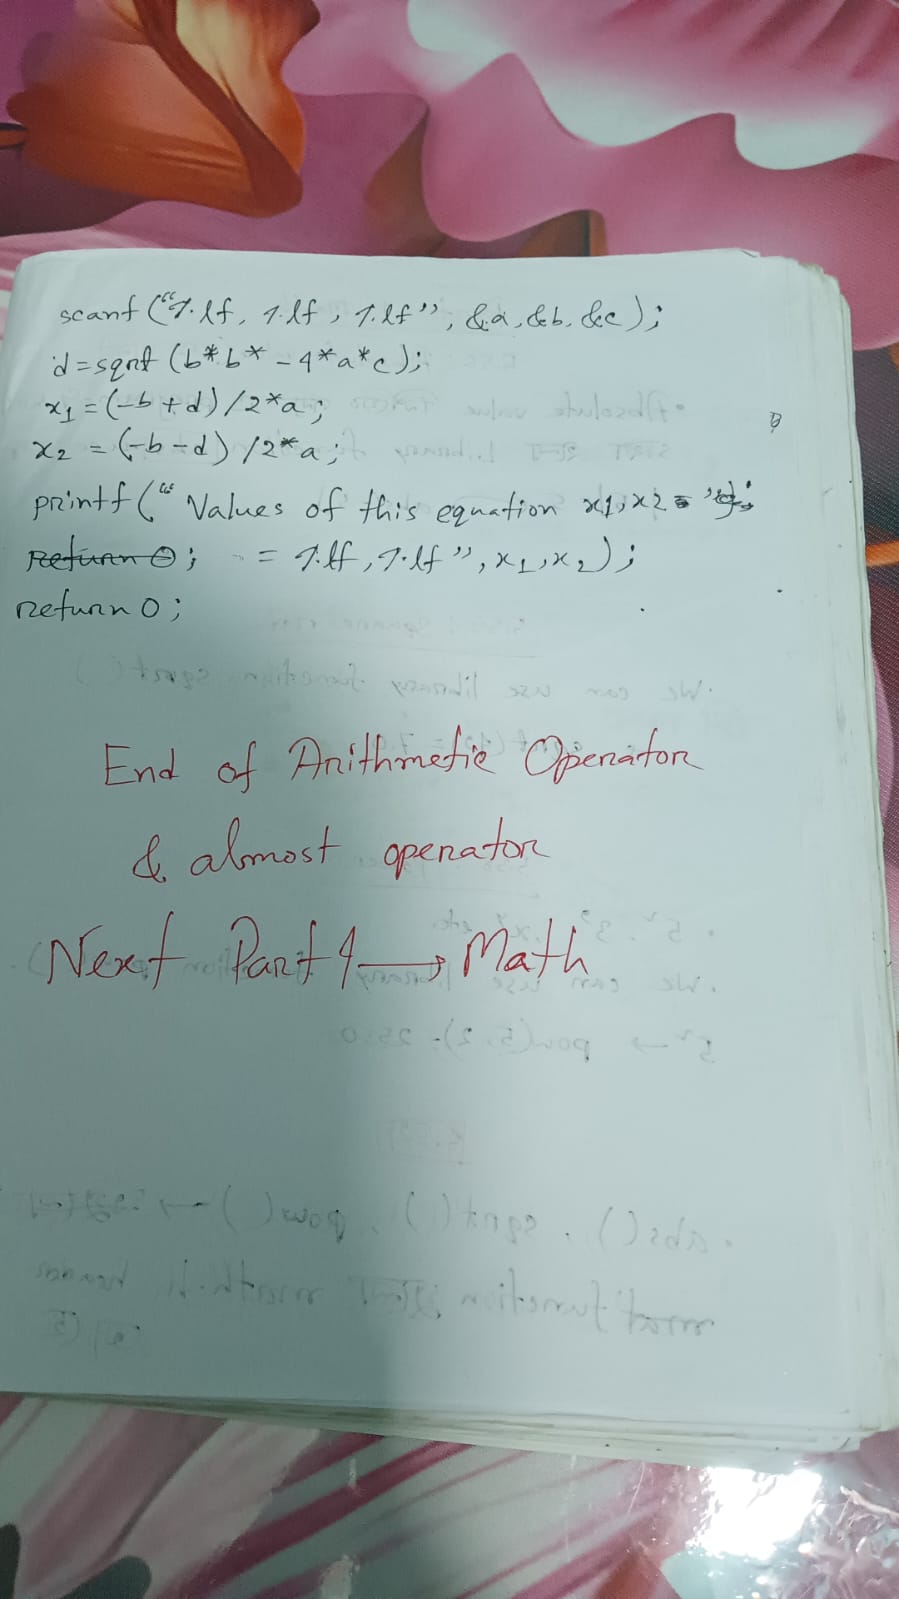 scanf ("%lf, %lf, %lf", &a, &b, &c);
d = sqrt (b*b* - 4*a*c);
x1 = (-b + d) /2*a;
x2 = (-b - d) /2*a;
printf (" Values of this equation x1, x2 =
return 0; = %lf, %lf", x1, x2);
return 0;
End of Arithmetic Operator
& almost operator
Next Part 4 → Math